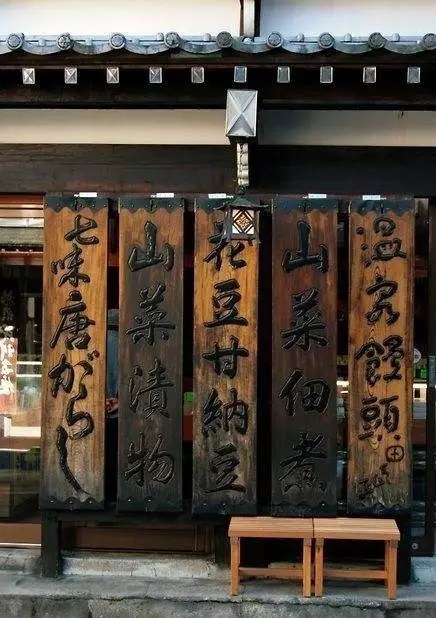 温泉饅頭
山菜佃煮
花豆甘納豆
山菜漬物
七味唐がらし